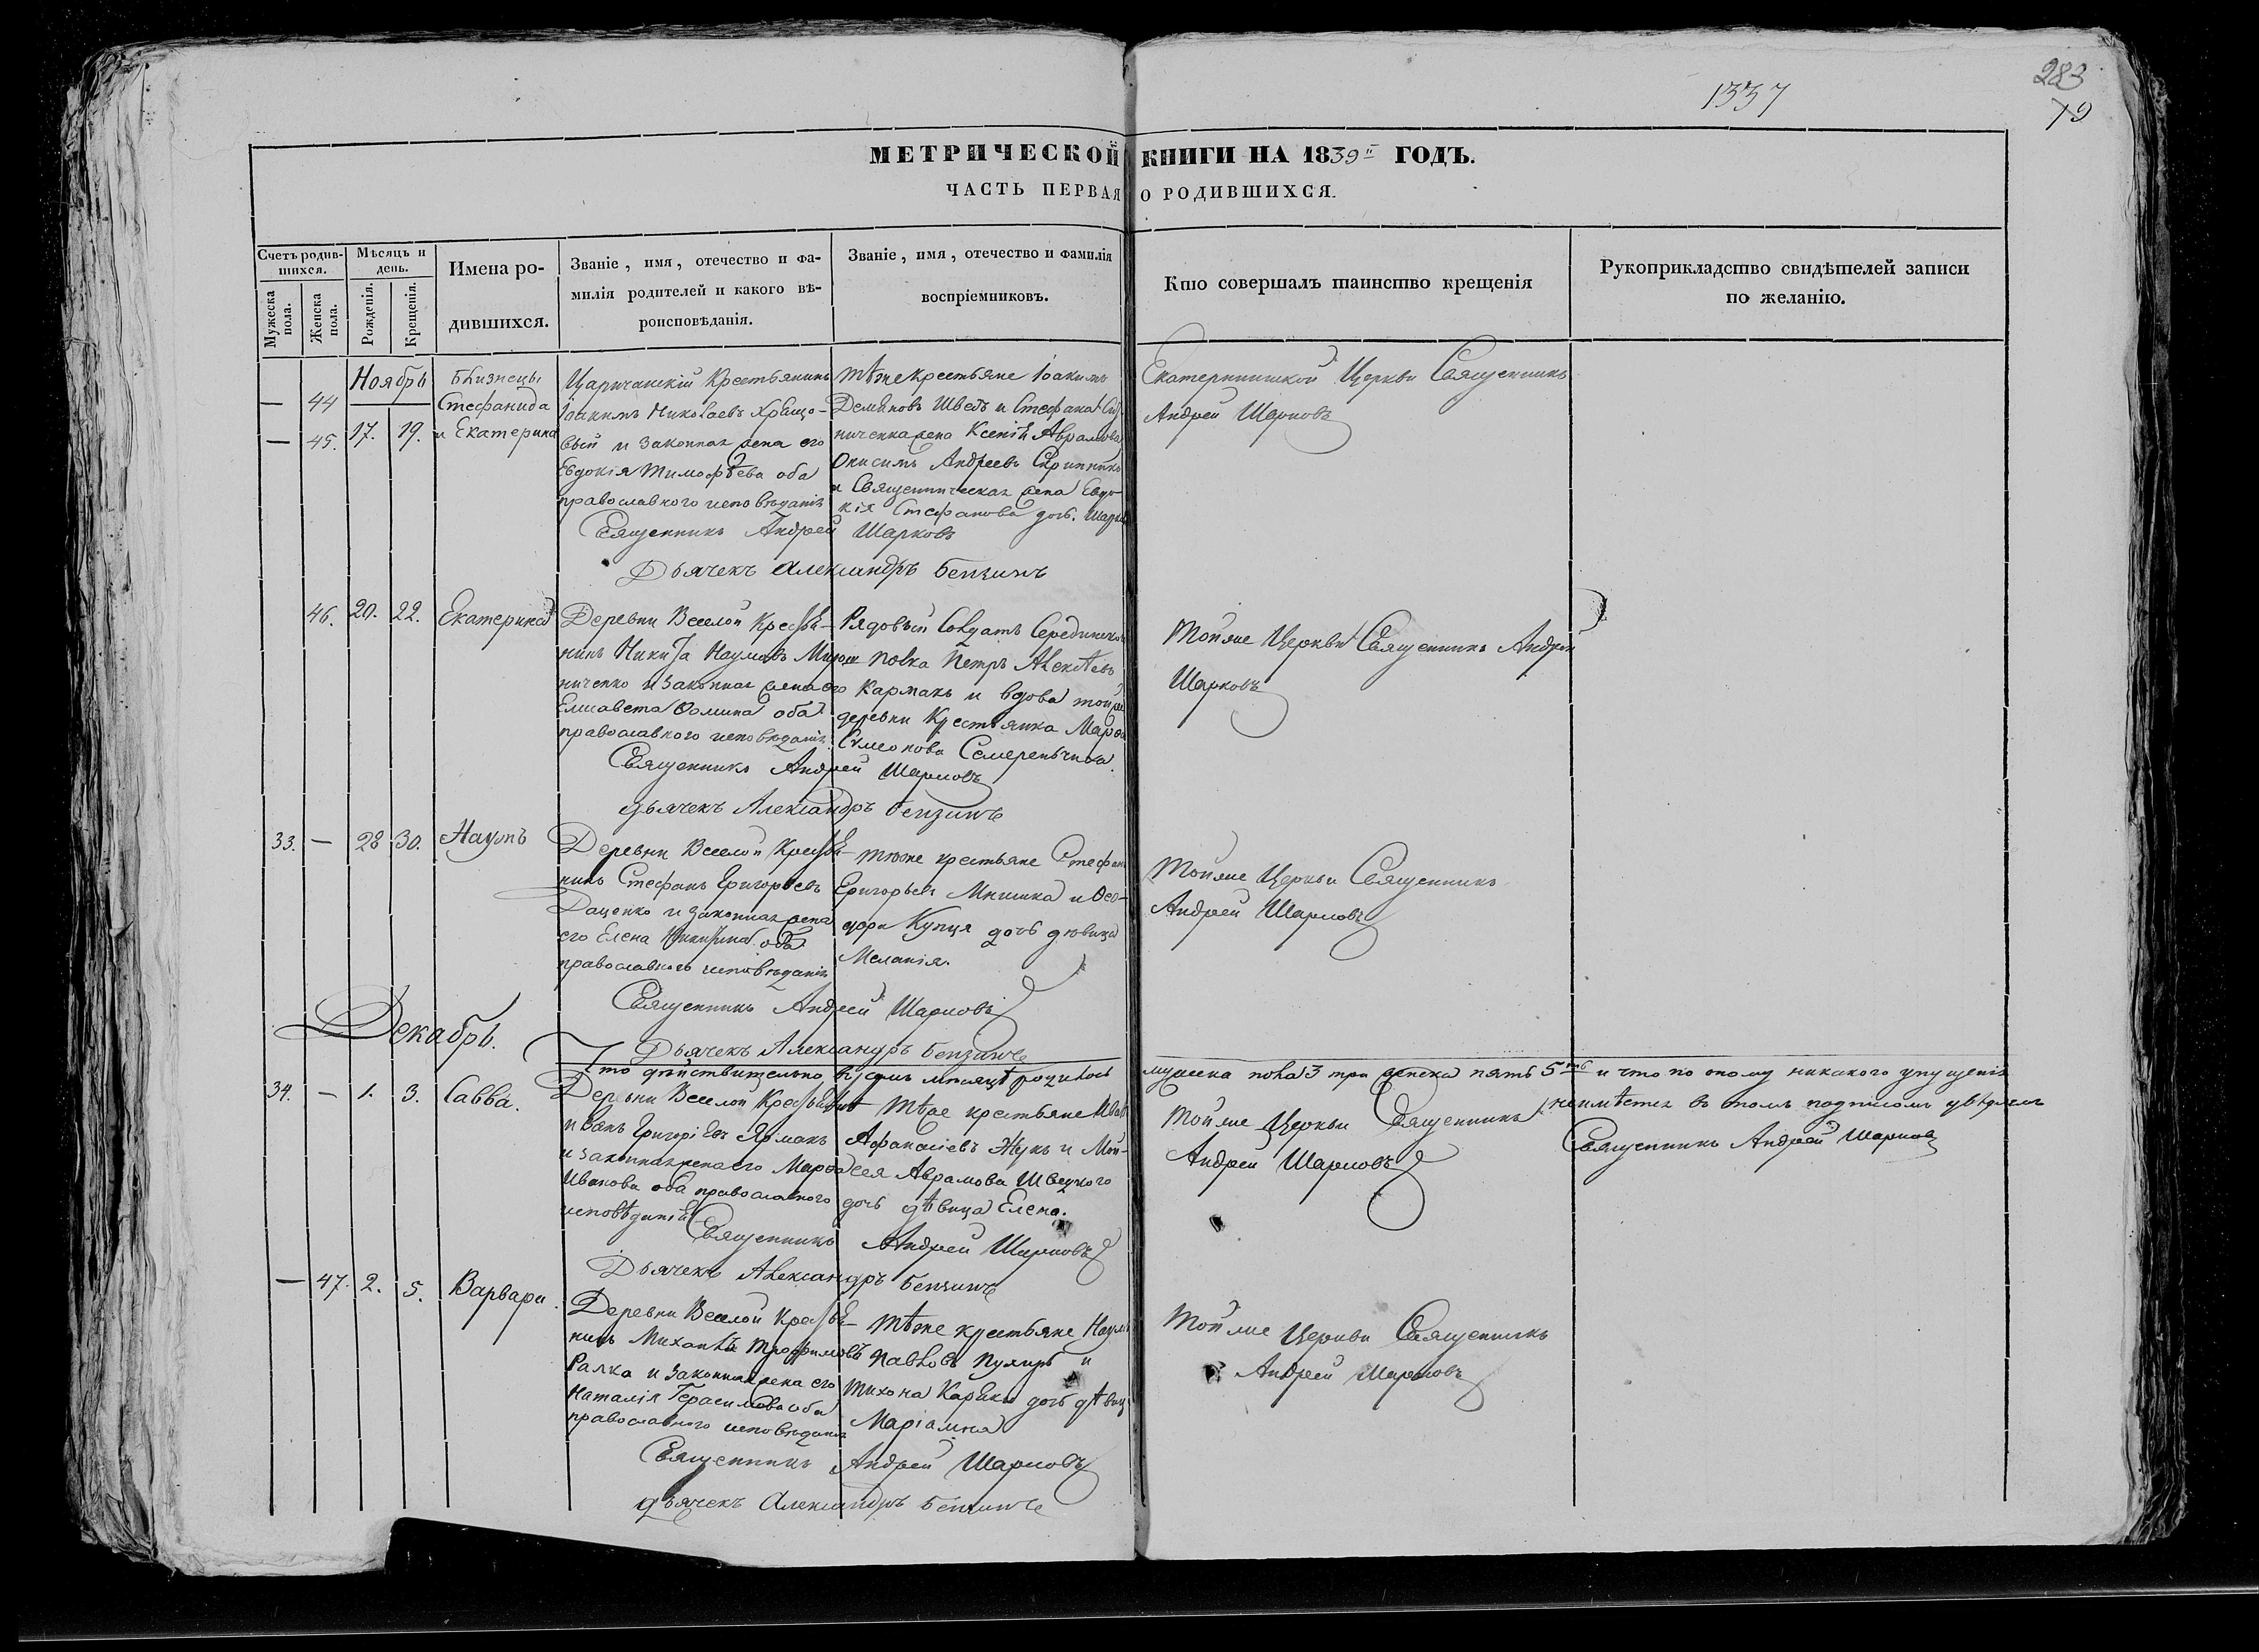 1337
283
79
МЕТРИЧЕСКОЙ КНИГИ НА 1839й ГОДЪ.
ЧАСТЬ ПЕРВАЯ О РОДИВШИХСЯ.
Счетъ родившихся.
Мужеска пола.
Женска пола.
Мѣсяцъ и день.
Рожденія.
Крещенія.
Имена родившихся.
Званіе, имя, отечество и фамилія родителей и какого вѣроисповѣданія.
Званіе, имя, отечество и фамилія воспріемниковъ.
Кто совершалъ таинство крещенія
Рукоприкладство свидѣтелей записи по желанію.
Ноябрь
— 44
— 45. 17. 19.
близнецы
Стефанида
и Екатерина
Царичанскій Крестьянинъ
Іоакимъ Николаевъ
и законная жена его
Евдокія Тимофѣева оба
православного исповѣданія
тѣже Крестьяне Іоакимъ
Демьяновъ Шведъ и Стефана
жена Ксенія Аврамова
Онисимъ Андреевъ Скрипникъ
и Священническая жена Евдо-
кія Стефанова дочь.
Екатерининской Церкви Священникъ
Андрей Шарковъ
Священникъ Андрей Шарковъ
Дьячекъ Александръ
46. 20. 22. Екатерина
Деревни Веселой Кресья-
нинъ Никита Наумовъ
и законная жена его
Елисавета Фомина оба
православного исповѣданія.
Рядовый Солдатъ
полка Петръ Алексѣевъ
Кармакъ и вдова тойже
деревни Крестьянка Марфа
Симеонова
Тойже Церкви Священникъ Андрей
Шарковъ
Священникъ Андрей Шарковъ
Дьячекъ Александръ
33. — 28 30. Наумъ
Деревни Веселой Кресья-
нинъ Стефанъ Григорьевъ
Даценко и законная жена
его Елена Никитина оба
православного исповѣданія
тѣже крестьяне Стефанъ
Григорьевъ Мнишка и Фео-
дора Купця дочь дѣвица
Меланія.
Тойже Церкви Священникъ
Андрей Шарковъ
Священникъ Андрей Шарковъ
Дьячекъ Александръ
Декабрь.
Что дѣйствительно въ семъ мѣсяцѣ родилось мужеска пола 3 три женска пять 5ть и что по оному никакого упущенія
неимѣется въ томъ подписомъ
Священникъ Андрей Шарковъ
34. — 1. 3. Савва.
Деревни Веселой
Иванъ Григоріевъ Ярмакъ
и законная жена его Марфа
Иванова оба православного
исповѣданія
Тѣже крестьяне Иванъ
Афанасіевъ Жукъ и Мой-
сея Аврамова Швецкого
дочь дѣвица Елена.
Тойже Церкви Священникъ
Андрей Шарковъ
Священникъ Андрей Шарковъ
Дьячекъ Александръ
— 47. 2. 5. Варвара.
Деревни Веселой Кресья-
нинъ Михаилъ Трофимовъ
Ралка и законная жена его
Наталія Герасимова оба
православного исповѣданія
Тѣже крестьяне Наумъ
Павловъ и
Тихона дочь дѣвица
Маріамна
Тойже Церкви Священникъ
Андрей Шарковъ
Священникъ Андрей Шарковъ
дьячекъ Александръ